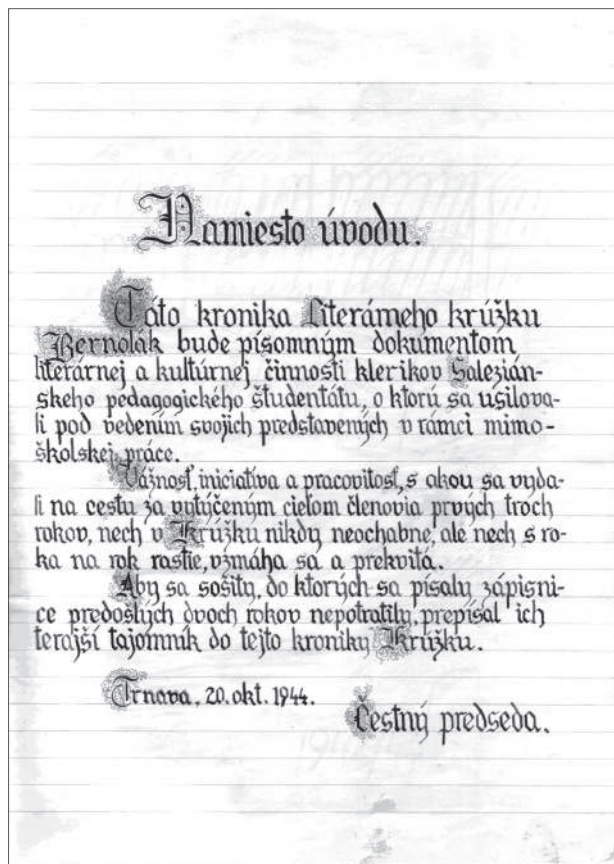 Namiesto úvodu.
Táto kronika Literárneho krúžku
Bernolák bude písomným dokumentom
literárnej a kultúrnej činnosti klerikov Salezián-
skeho pedagogického študentátu, o ktorú sa usilova-
li pod vedením svojich predstavených v rámci mimo-
školskej práce.
Vážnosť, iniciatíva a pracovitosť, s akou sa vyda-
li na cestu za vytýčeným cieľom členovia prvých troch
rokov, nech v Krúžku nikdy neochabne, ale nech s ro-
ka na rok rastie, vzmáha sa a prekvitá.
Aby sa sošity, do ktorých sa písaly zápisni-
ce predošlých dvoch rokov nepotratily, prepísal ich
terajší tajomník do tejto kroniky Krúžku.
Trnava, 20. okt. 1944.
Čestný predseda.